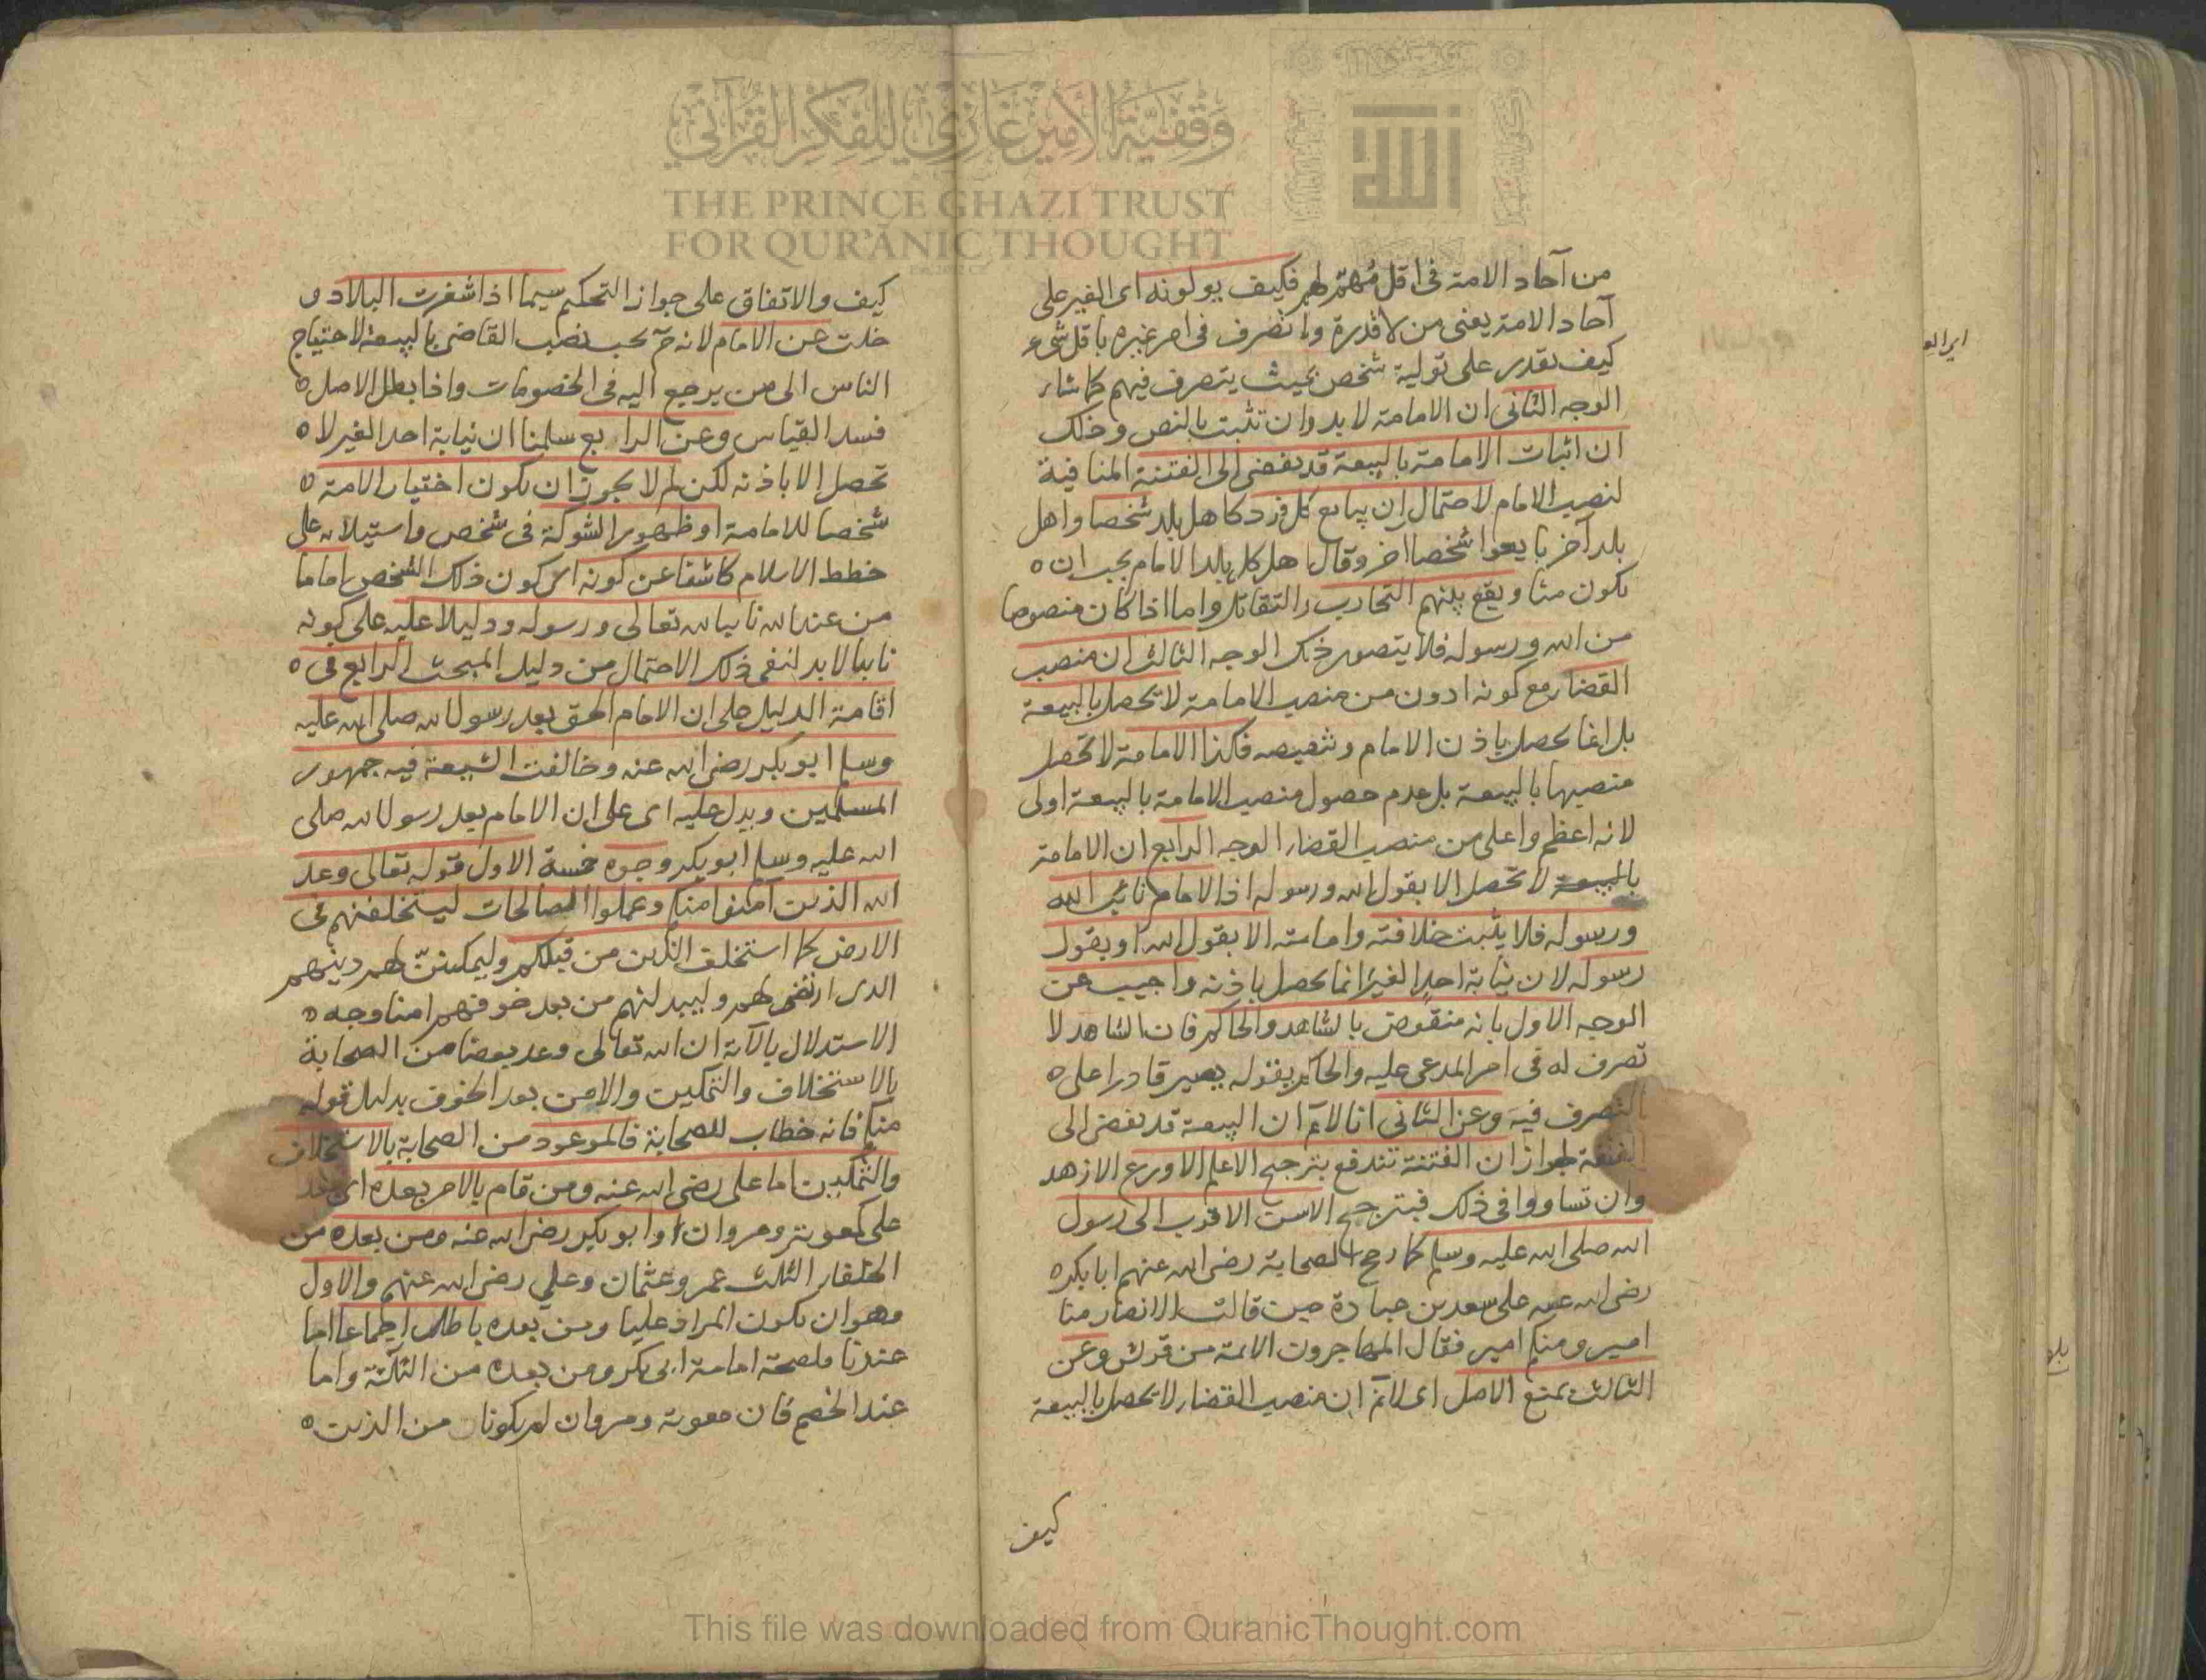 وقفية الأمير غازي للفكر القرآني
THE PRINCE GHAZI TRUST
FOR QUR'ANIC THOUGHT
من آحاد الامة فى اقل مُهمّ لهم فكيف يولونه اى الغير على
آحاد الامة يعنى من لا قدرة ولا تصرف فى امر غيره باقل شىء
كيف يقدر على تولية شخص بحيث يتصرف فيهم كما شاء
الوجه الثانى ان الامامة لا بد وان تثبت بالنص وذلك
ان اثبات الامامة بالبيعة قد يفضى الى الفتنة المنافية
لنصب الامام لاحتمال ان يبايع كل فرد كاهل بلد شخصا واهل
بلد آخر بايعوا شخصا اخر وقال اهل كل بلد الامام يجب ان
يكون منا ويقع بينهم التحارب والتقاتل واما اذا كان منصوصا
من الله ورسوله فلا يتصور ذلك الوجه الثالث ان منصب
القضاء مع كونه ادون من منصب الامامة لا يحصل بالبيعة
بل انما يحصل باذن الامام وتنصيصه فكذا الامامة لا تحصل
منصبها بالبيعة بل عدم حصول منصب الامامة بالبيعة اولى
لانه اعظم واعلى من منصب القضاء الوجه الرابع ان الامامة
بالبيعة لا تحصل الا بقول الله ورسوله اذ الامام نائب الله
ورسوله فلا يثبت خلافته وامامته الا بقول الله او بقول
رسوله لان نيابة احد الغير انما يحصل باذنه واجيب عن
الوجه الاول بانه منقوض بالشاهد والحاكم فان الشاهد لا
تصرف له فى امر المدعى عليه والحاكم بقوله يصير قادرا على
التصرف فيه وعن الثانى انا لا نم ان البيعة قد يفضى الى
الفتنة لجواز ان الفتنة تندفع بترجيح الاعلم الاورع الازهد
وان تساووا فى ذلك فبترجيح الاسن الاقرب الى رسول
الله صلى الله عليه وسلم كما رجح الصحابة رضى الله عنهم ابا بكر
رضى الله عنه على سعد بن عبادة حين قالت الانصار منا
امير ومنكم امير فقال المهاجرون الائمة من قريش وعن
الثالث بمنع الاصل اى لا نم ان منصب القضاء لا يحصل بالبيعة
كيف
كيف والاتفاق على جواز التحكيم سيما اذا شغرت البلاد اى
خلت عن الامام لانه ح يجب نصب القاضى بالبيعة لاحتياج
الناس الى من يرجع اليه فى الخصومات واذا بطل الاصل
فسد القياس وعن الرابع سلمنا ان نيابة احد الغير لا
تحصل الا باذنه لكن لم لا يجوز ان يكون اختيار الامة
شخصا للامامة او ظهور الشوكة فى شخص واستيلائه على
خطط الاسلام كاشفا عن كونه اى كون ذلك الشخص اماما
من عند الله نايبا لله تعالى ورسوله ودليلا عليه على كونه
نايبا لا بد لنفى ذلك الاحتمال من دليل المبحث الرابع فى
اقامة الدليل على ان الامام الحق بعد رسول الله صلى الله عليه
وسلم ابو بكر رضى الله عنه وخالفت الشيعة فيه جمهور
المسلمين ويدل عليه اى على ان الامام بعد رسول الله صلى
الله عليه وسلم ابو بكر وجوه خمسة الاول قوله تعالى وعد
الله الذين آمنوا منكم وعملوا الصالحات ليستخلفنهم فى
الارض كما استخلف الذين من قبلكم وليمكننّ لهم دينهم
الذى ارتضى لهم وليبدلنهم من بعد خوفهم امنا وجه
الاستدلال بالآية ان الله تعالى وعد بعضا من الصحابة
بالاستخلاف والتمكين والامن بعد الخوف بدليل قوله
منكم فانه خطاب للصحابة فالموعود من الصحابة بالاستخلاف
والتمكين اما على رضى الله عنه ومن قام بالامر بعده اى بعد
على كمعوية ومروان او ابو بكر رضى الله عنه ومن بعده من
الخلفاء الثلث عمر وعثمان وعلي رضى الله عنهم والاول
وهو ان يكون المراد عليا ومن بعده باطل اجماعا اما
عندنا فلصحة امامة ابى بكر ومن بعده من الثلثة واما
عند الخصم فان معوية ومروان لم يكونا من الذين
This file was downloaded from QuranicThought.com